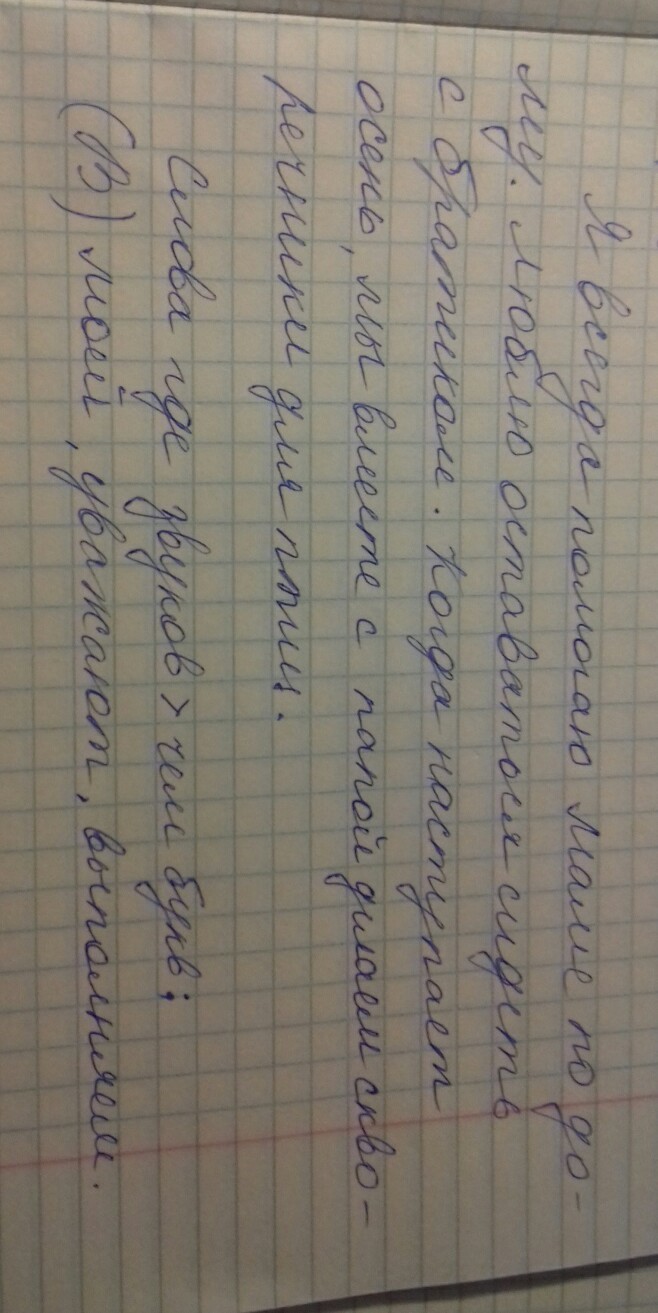 Я всегда помогаю маме по до-
му. Люблю оставаться сидеть
с братиком. Когда наступает
осень, мы вместе с папой дилаем скво-
речники для птиц.
Слова где звуков > чем букв:
(В) моей, уважают, выполняем.